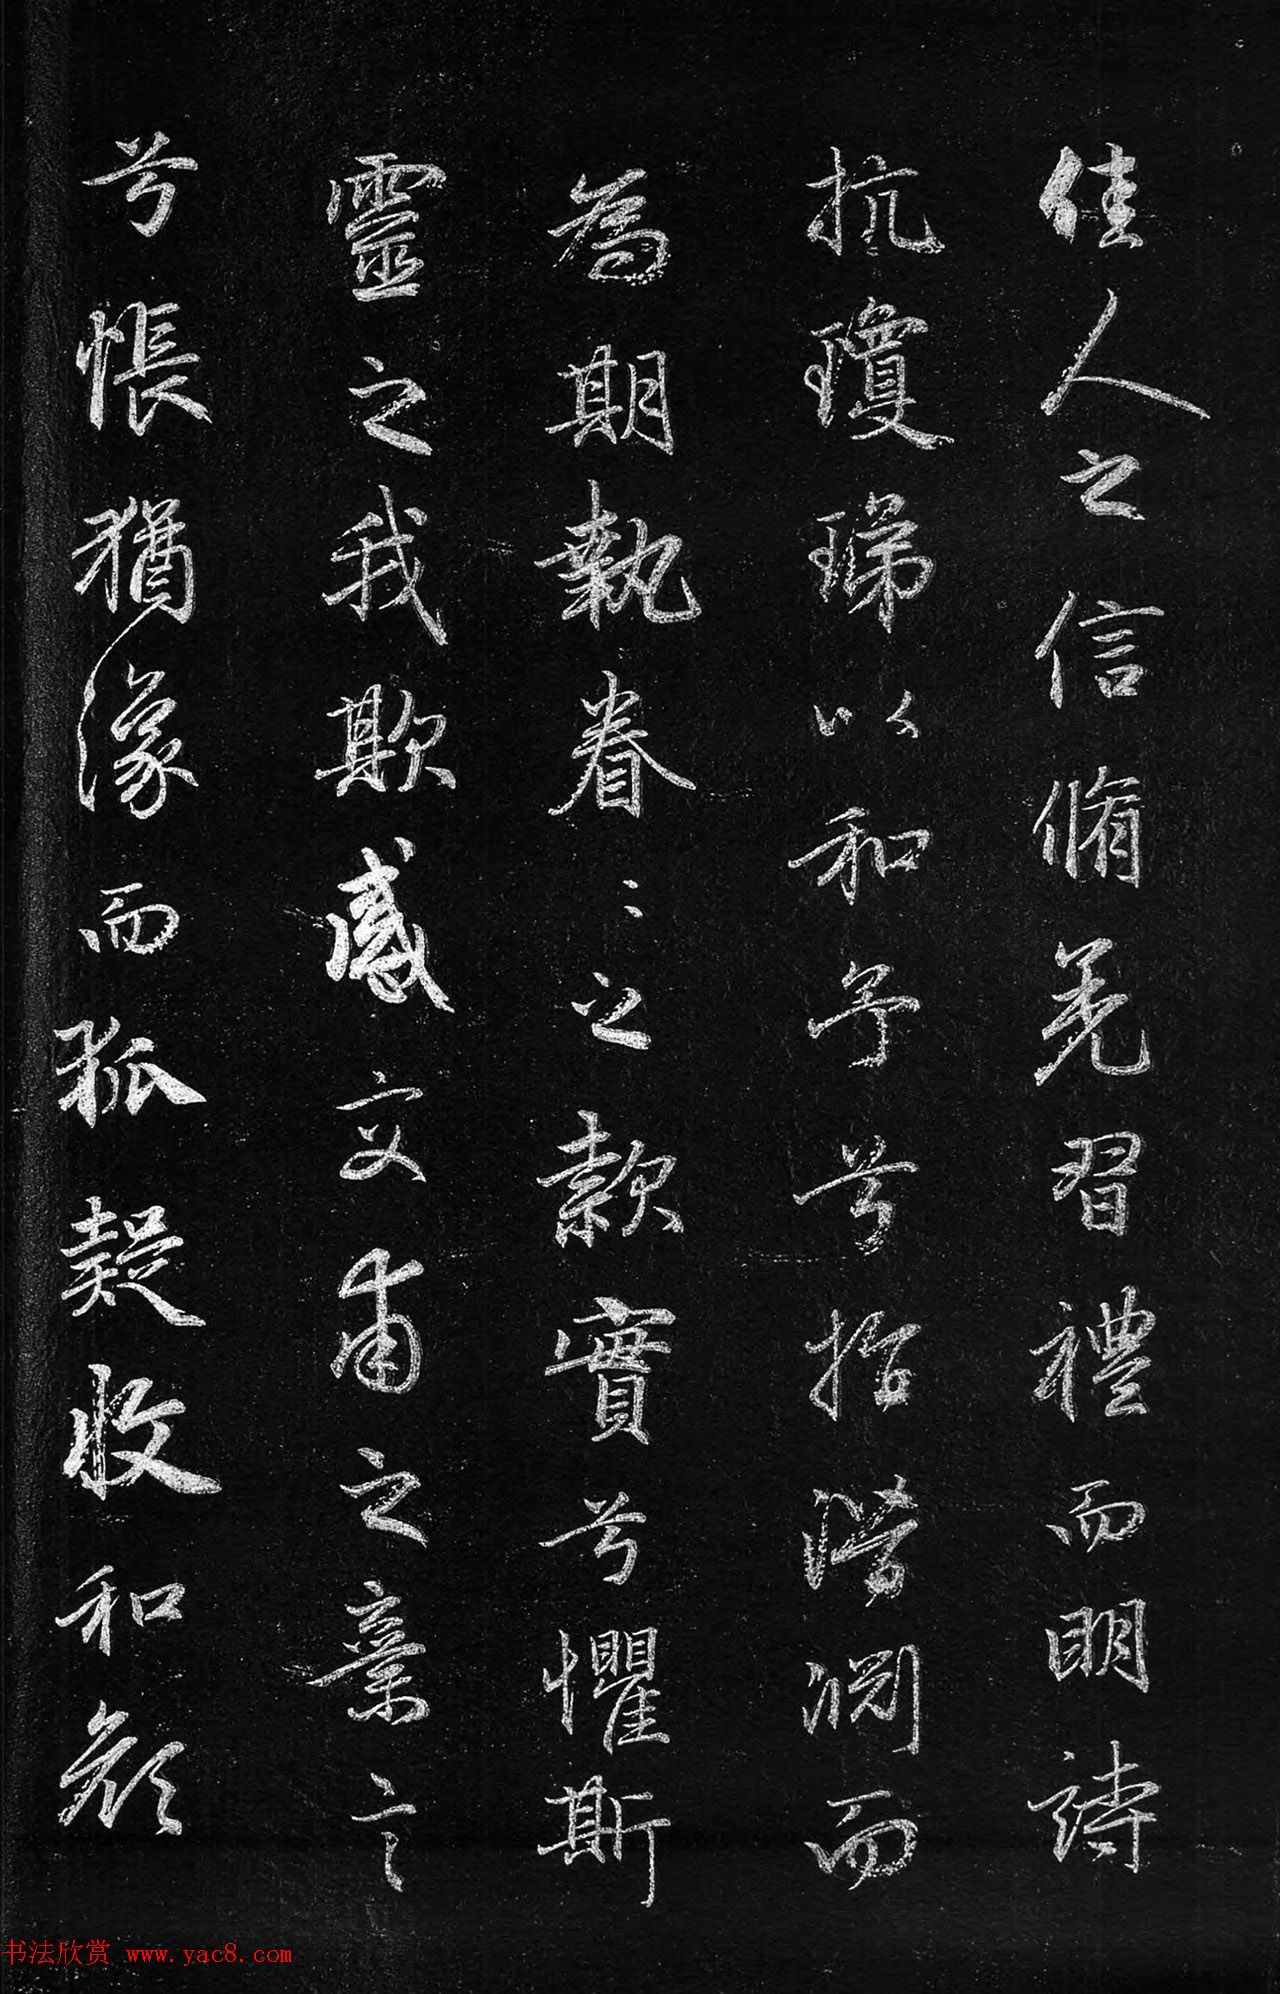 佳人之信脩羌習禮而明詩
抗瓊珶以和予兮指潛淵而
為期執眷〻之款實兮懼斯
靈之我欺感交甫之棄言
兮悵猶豫而狐疑收和顏
书法欣赏 www.yac8.com